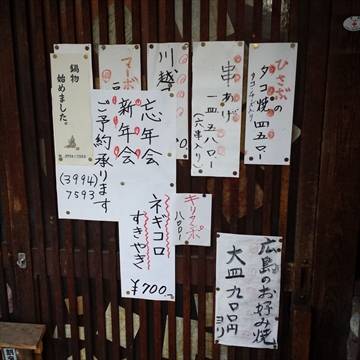 ひさぶの
タコ焼 四五〇ー
串あげ
一皿 五八〇ー
(六串入り)
川越
マボ
鍋物
始めました。
忘年会
新年会
ご予約承ります
(3994)
7593
キリタンポ
八〇〇ー
ネギコロ
すきやき
¥700
広島のお好み焼
大皿 九〇〇円
ヨリ